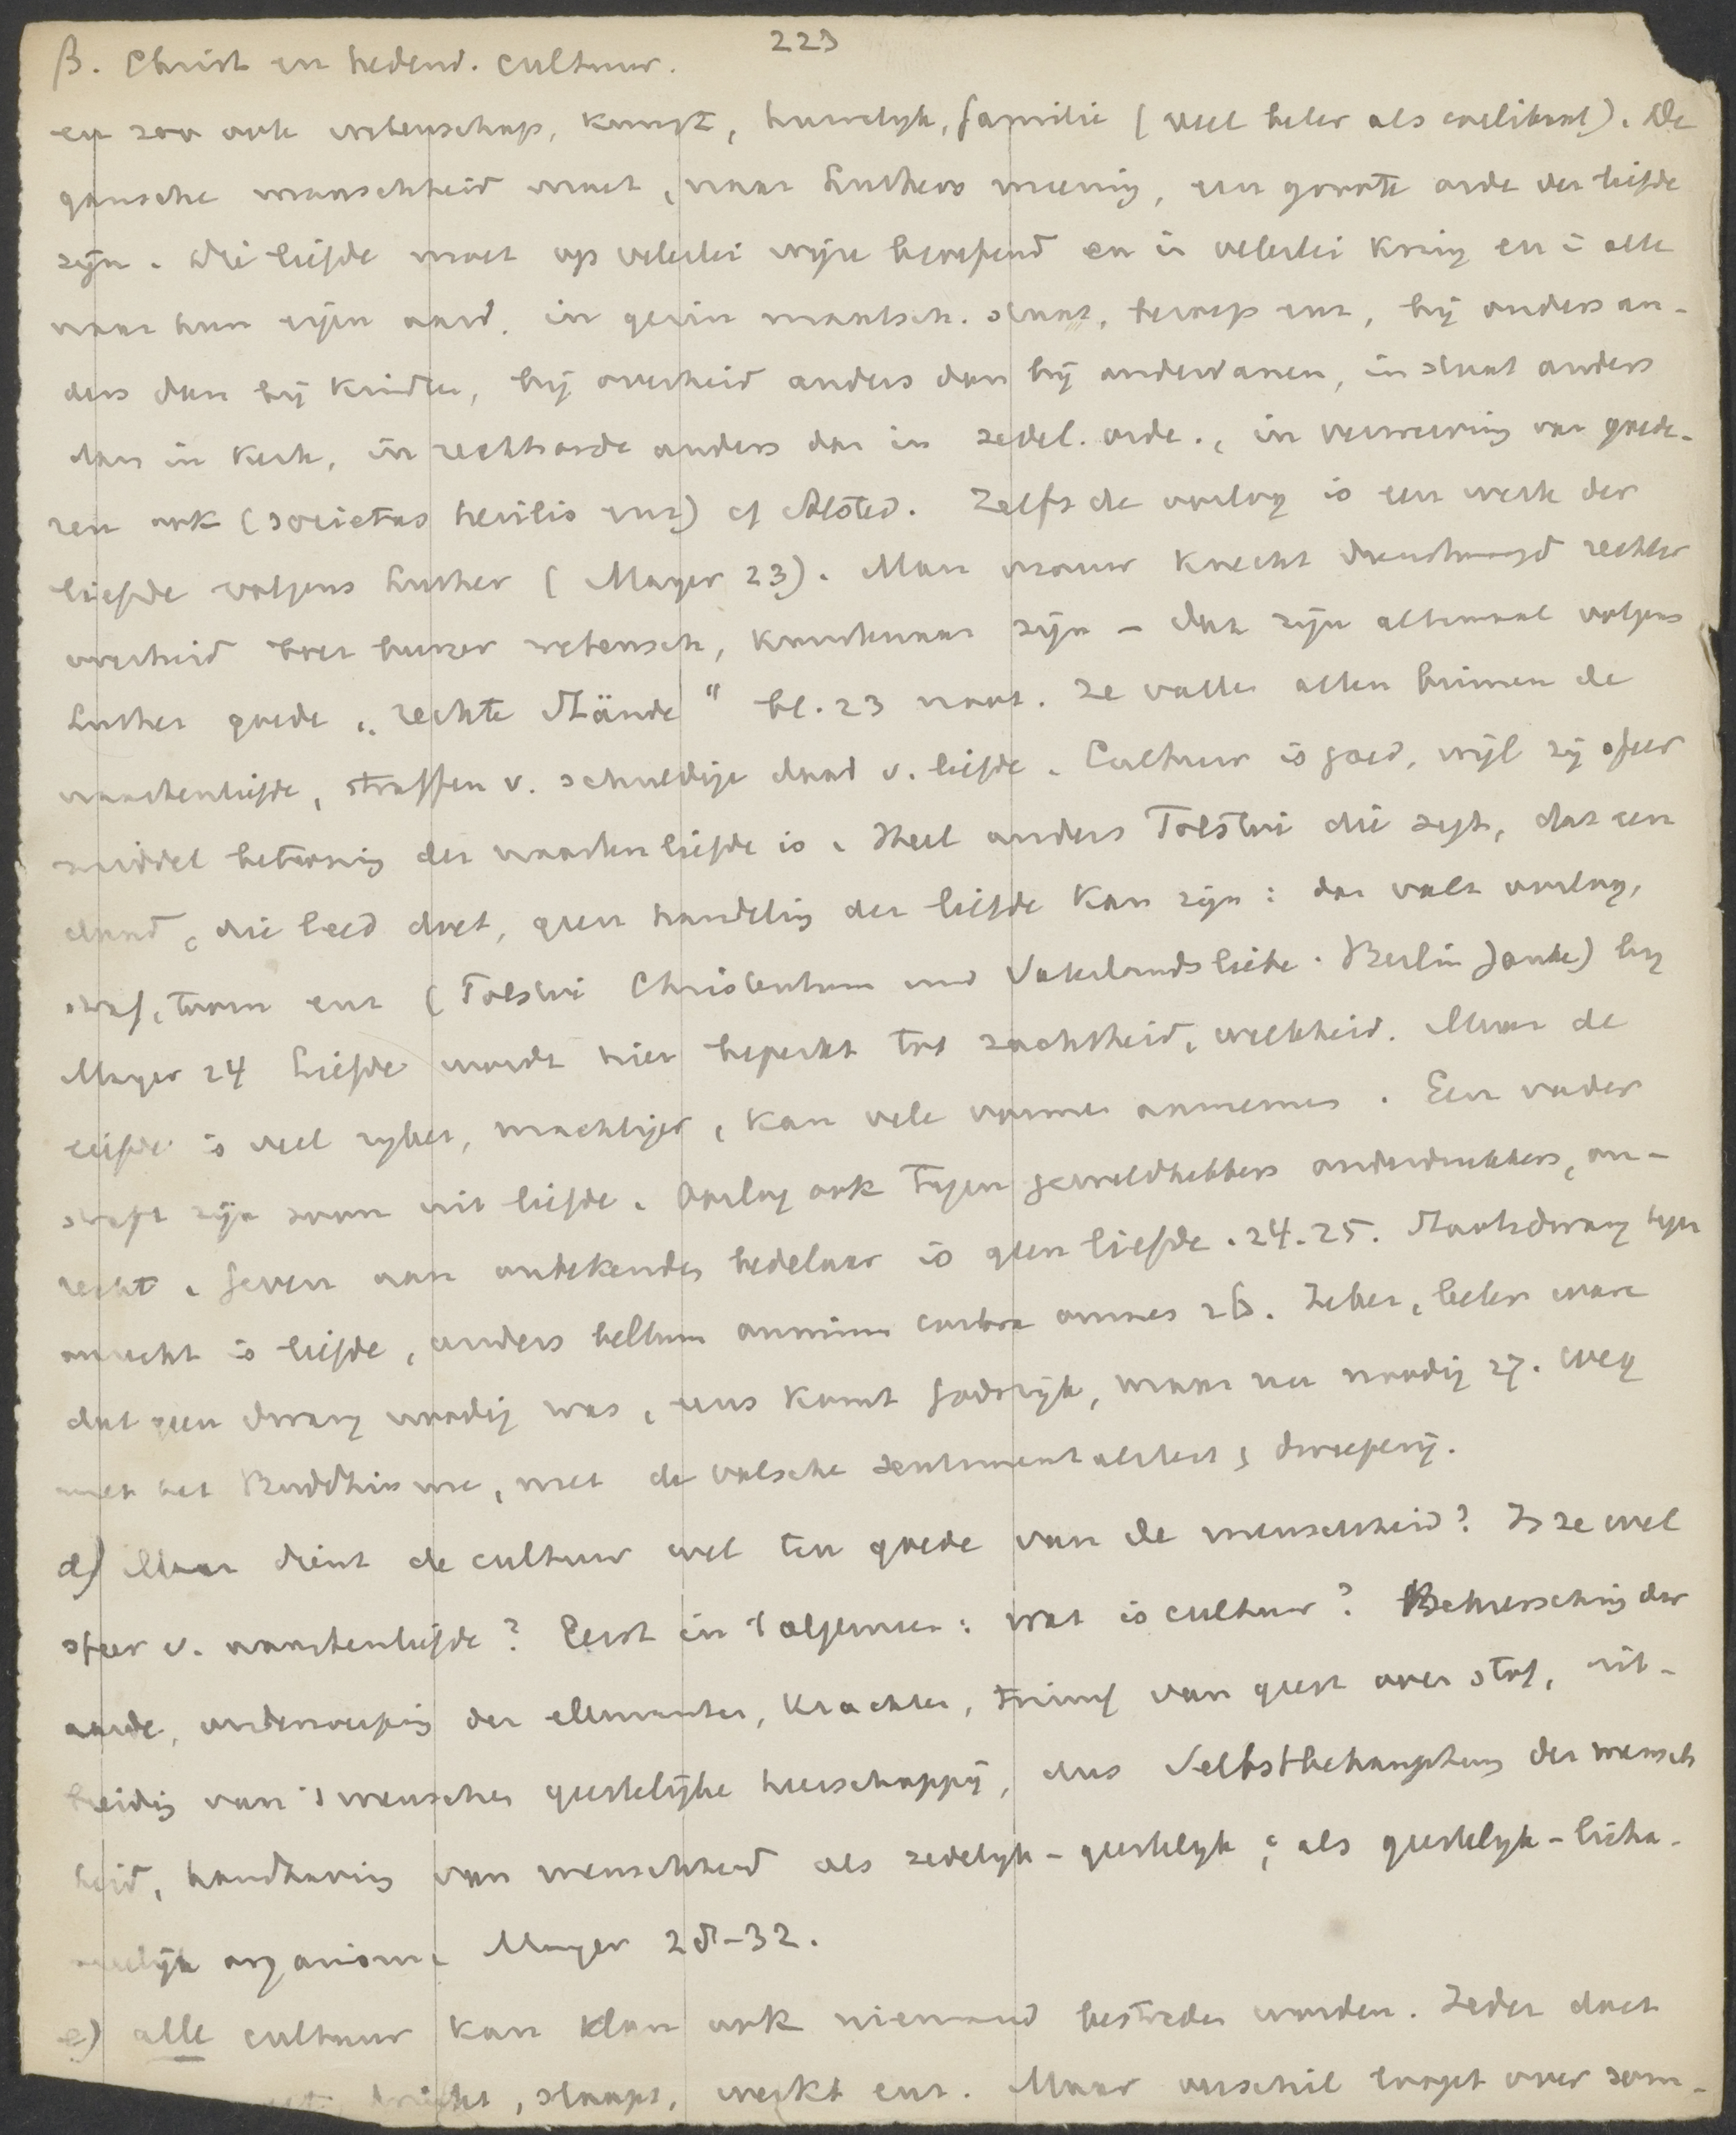 223
β. Christ en hedend. cultuur.
en zoo ook wetenschap, kunst, huwelyk, familie (veel beter als coelibaat). De
gansche menschheid moet, naar Luthers meening, een groote orde der liefde
zijn. Die liefde moet op velerlei wijze beoefend en in velerlei kring en in alle
naar hun eigen aard. in gezin maatsch. staat, beroep enz, bij ouders an-
ders dan bij kinder, bij overheid anders dan bij onderdanen, in staat anders
dan in kerk, in rechtsorde anders dan in zedel. orde., in verwerving van goede-
ren ook (societas herilis enz) cf Alsted. Zelfs de oorlog is een werk der
liefde volgens Luther (Mayer 23). Man vrouw knecht dienstmaagd rechter
overheid boer burger wetensch, kunstenaar zijn – dat zijn altemaal volgens
Luther goede „rechte Stände" bl. 23 noot. Ze vallen allen binnen de
naastenliefde, straffen v. schuldige daad v. liefde. Cultuur is goed, wijl zij sfeer
middel betooning der naastenliefde is. Heel anders Tolstoi die zegt, dat een
daad, die leed doet, geen handeling der liefde kan zijn: dan valt oorlog,
straf, toorn enz (Tolstoi Christentum und Vaterlandsliebe. Berlin Janke) by
Mayer 24 Liefde wordt hier beperkt tot zachtheid, weekheid. Maar de
liefde is veel ryker, machtiger, kan vele vormen aannemen. Een vader
straft zijn zoon uit liefde. Oorlog ook tegen geweldhebbers onderdrukkers, on-
recht. Geven aan onbekenden bedelaar is geen liefde. 24. 25. Staatsdwang tegen
onrecht is liefde, anders bellum omnium contra omnes 26. Zeker, beter ware
dat geen dwang noodig was, eens komt Godsrijk, maar nu noodig 27. Weg
met het Buddhisme, met de valsche sentimentaliteit, dweeperij.
d) Maar dient de cultuur wel ten goede van de menschheid? Is ze wel
sfeer v. naastenliefde? Eerst in 't algemeen: wat is cultuur? Beheersching der
aarde, onderwerping der elementen, krachten, triumf van geest over stof, uit-
breiding van 's menschen geestelijke heerschappij, dus Selbstbehauptung der mensch
heid, handhaving van menschheid als zedelyk-geestelyk, als geestelyk-licha-
melijk organisme Mayer 28-32.
e) alle cultuur kan dan ook niemand bestreden worden. Ieder doet
drinkt, slaapt, werkt enz. Maar verschil loopt over som-